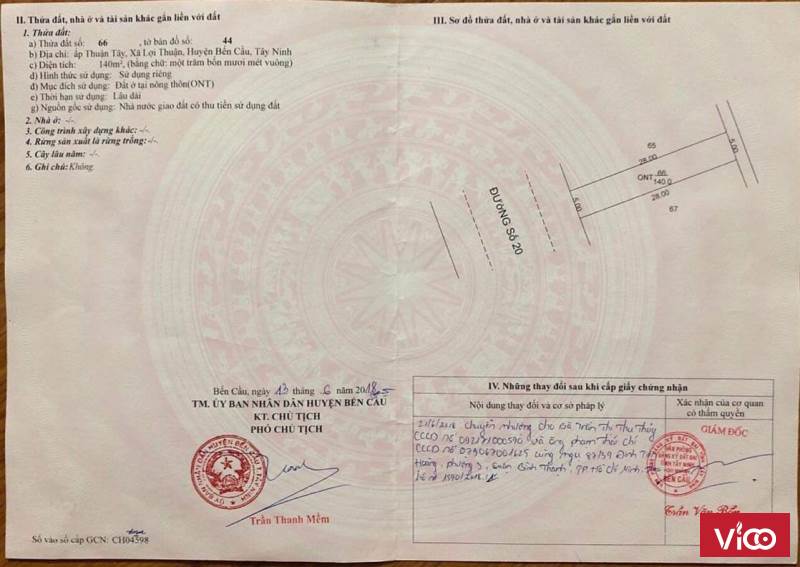 II. Thửa đất, nhà ở và tài sản khác gắn liền với đất
1. Thửa đất:
a) Thửa đất số: 66 , tờ bản đồ số: 44
b) Địa chỉ: ấp Thuận Tây, Xã Lợi Thuận, Huyện Bến Cầu, Tây Ninh
c) Diện tích: 140m², (bằng chữ: một trăm bốn mươi mét vuông)
d) Hình thức sử dụng: Sử dụng riêng
đ) Mục đích sử dụng: Đất ở tại nông thôn(ONT)
e) Thời hạn sử dụng: Lâu dài
g) Nguồn gốc sử dụng: Nhà nước giao đất có thu tiền sử dụng đất
2. Nhà ở: -/-
3. Công trình xây dựng khác: -/-
4. Rừng sản xuất là rừng trồng:-/-
5. Cây lâu năm: -/-
6. Ghi chú:Không
Bến Cầu, ngày 13 tháng 6 năm 2018
TM. ỦY BAN NHÂN DÂN HUYỆN BẾN CẦU
KT. CHỦ TỊCH
PHÓ CHỦ TỊCH
Trần Thanh Mềm
Số vào sổ cấp GCN: CH04598
III. Sơ đồ thửa đất, nhà ở và tài sản khác gắn liền với đất
65
28.00
5.00
ONT 66
140.0
28.00
5.00
67
ĐƯỜNG Số 20
IV. Những thay đổi sau khi cấp giấy chứng nhận
Nội dung thay đổi và cơ sở pháp lý
Xác nhận của cơ quan
có thẩm quyền
chuyển nhượng cho bà Trần Thị Thu Thủy
CCCD số và ông Phạm
CCCD số cùng ngụ
Hoàng, phường Quận Bình Thạnh, TP Hồ Chí Minh,
GIÁM ĐỐC
VĂN PHÒNG
ĐĂNG KÝ ĐẤT ĐAI
TỈNH TÂY NINH
BẾN CẦU
Trần Văn Bền
VICO